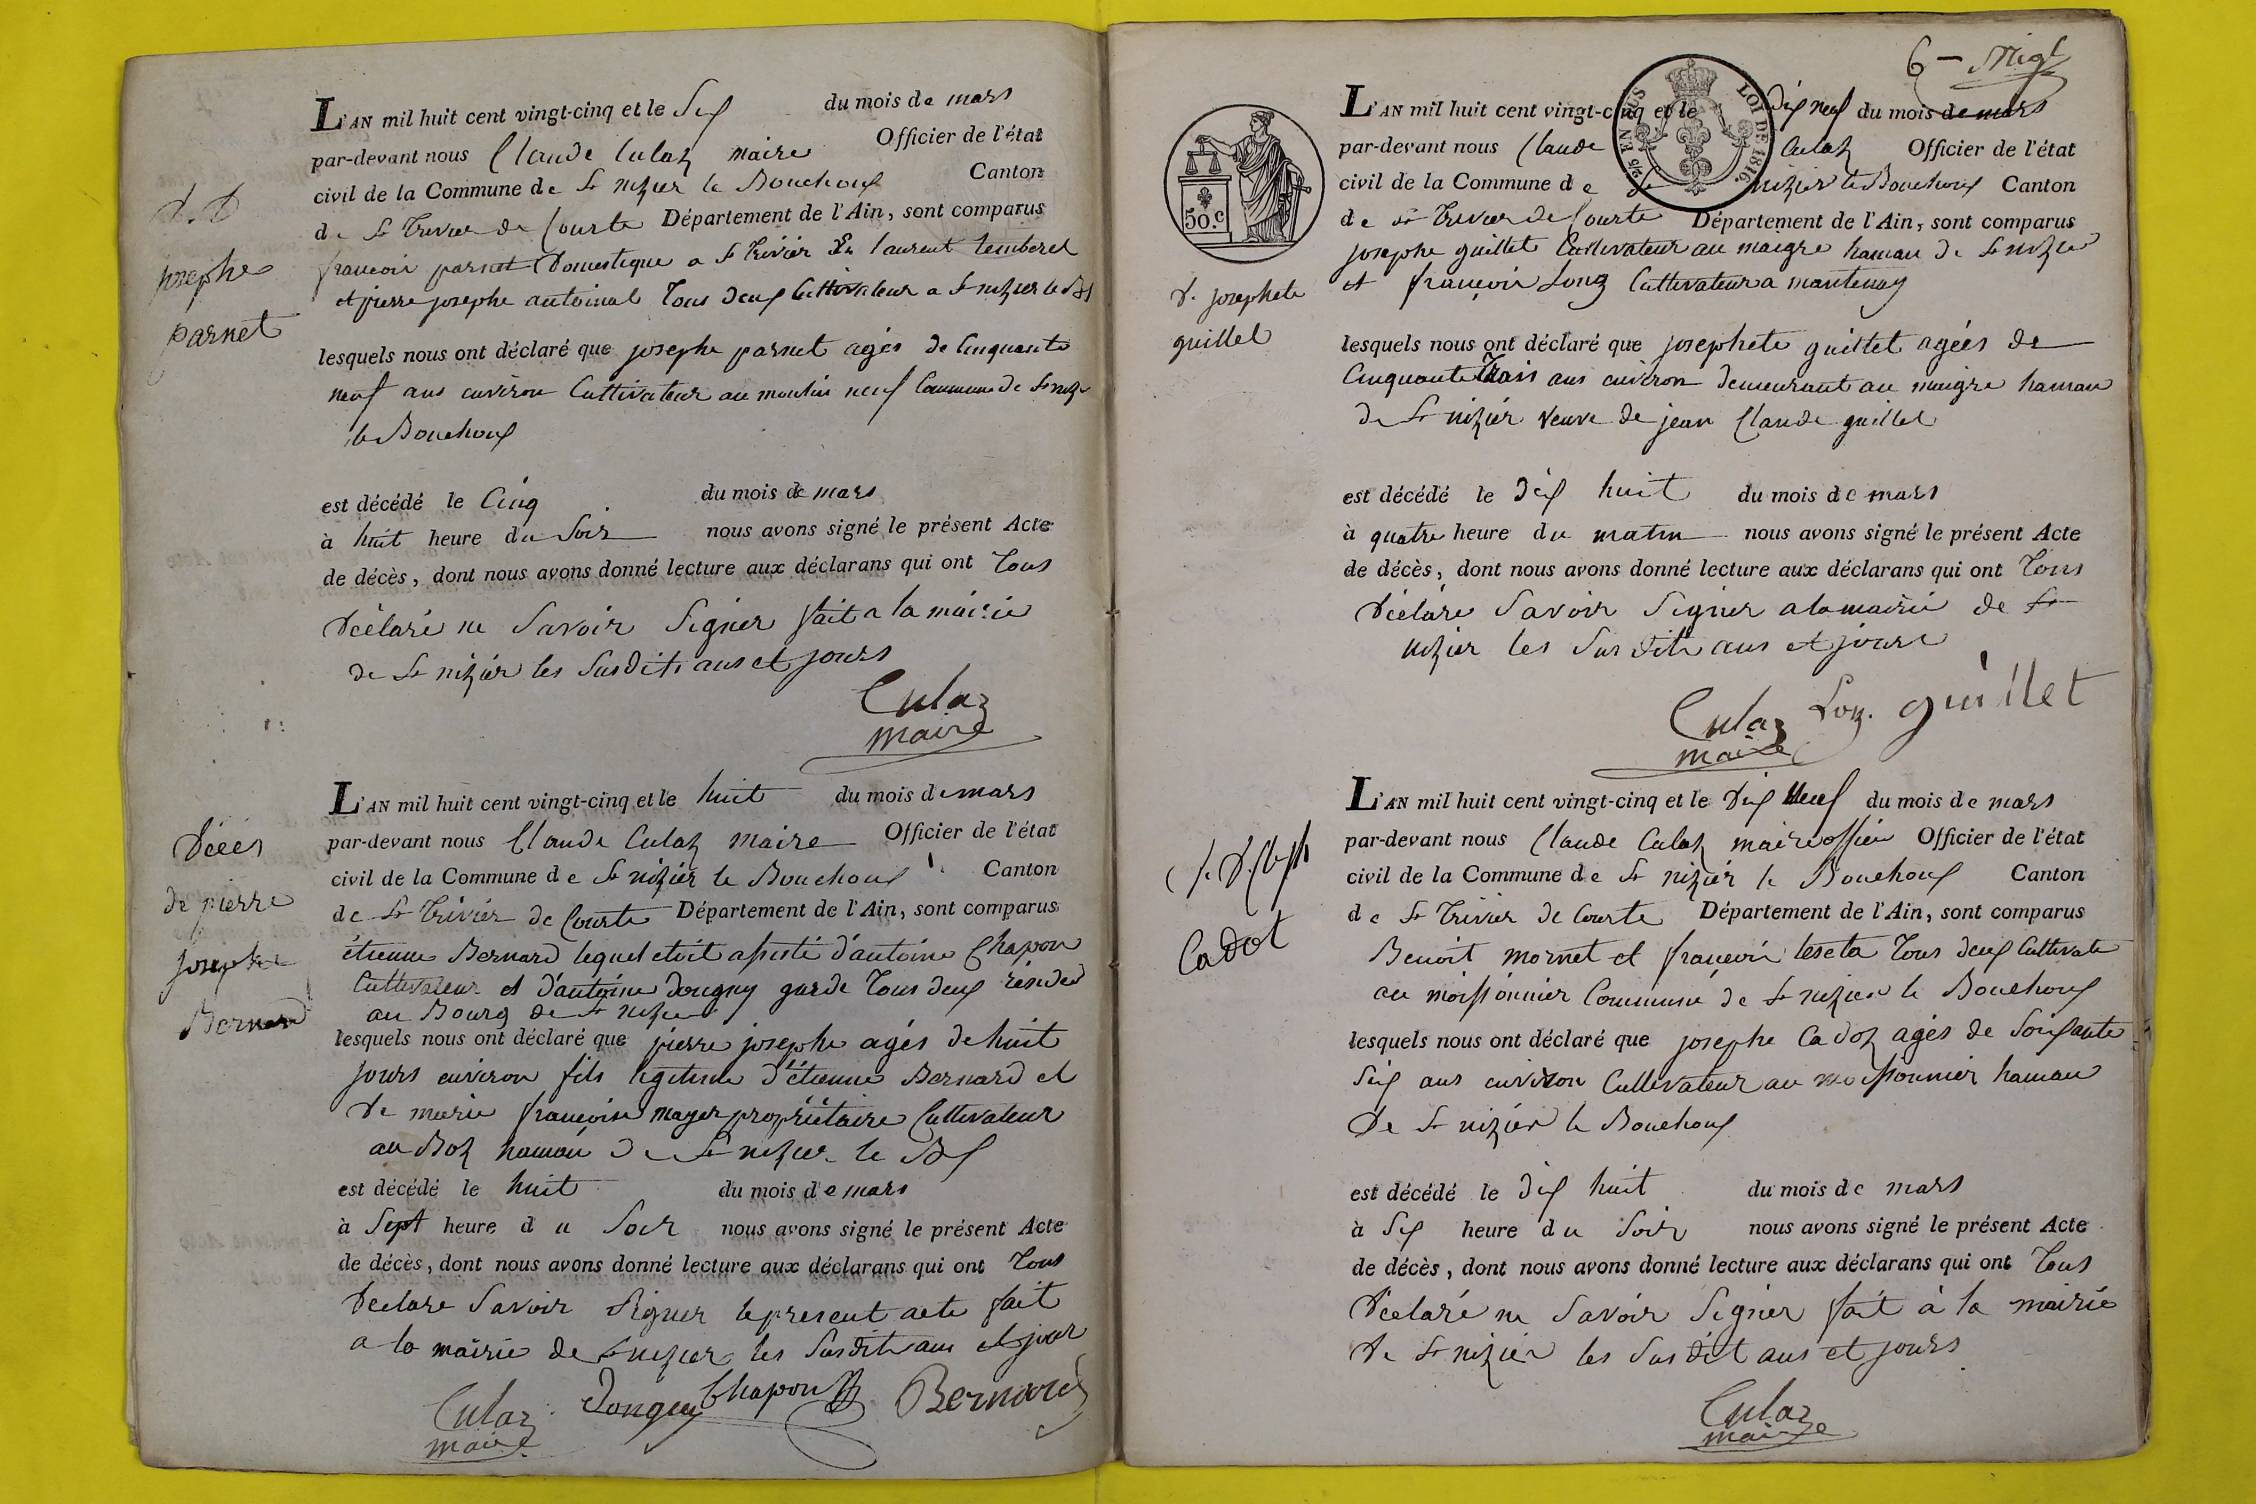 L'AN mil huit cent vingt-cinq et le Six du mois de mars
par-devant nous Claude Culaz maire Officier de l'état
civil de la Commune de St nizier le Bouchoux Canton
de St Trivier de Courte Département de l'Ain, sont comparus
françois parnet Domestique a St Trivier En laurent
et pierre josephe antoinat Tous deux Cultivateur a St nizier le Bx
D. D
josephe
parnet
lesquels nous ont déclaré que josephe parnet agés de Cinquante
neuf ans environ Cultivateur au moulin neuf Commune de St nizier
le Bouchoux
est décédé le Cinq du mois de mars
à huit heure du Soir nous avons signé le présent Acte
de décès, dont nous avons donné lecture aux déclarans qui ont Tous
Déclaré ne Savoir Signer fait a la mairie
de St nizier les Susdits ans et jours
Culaz
maire
L'AN mil huit cent vingt-cinq et le huit du mois de mars
par-devant nous Claude Culaz maire Officier de l'état
civil de la Commune de St nizier le Bouchoux Canton
de St Trivier de Courte Département de l'Ain, sont comparus
étienne Bernard lequel etoit assisté d'antoine Chapon
Cultivateur et d'antoine Donguy garde Tous deux résider
au Bourg de St nizier
Décés
de pierre
josephe
Bernard
lesquels nous ont déclaré que pierre josephe agés de huit
jours environ fils legitime d'étienne Bernard et
De marie françoise mayer propriétaire Cultivateur
au Boz hamau De St nizier le Bx
est décédé le huit du mois de mars
à Sept heure du Soir nous avons signé le présent Acte
de décès, dont nous avons donné lecture aux déclarans qui ont Tous
Déclare Savoir Signer le present acte fait
a la mairie de St nizier les Susdit ans et jour
Culaz Donguy Chapon Bernard
maire
6 -
50.C
25 EN SUS LOI DE 1816.
L'AN mil huit cent vingt-cinq et le Dix neuf du mois de mars
par-devant nous Claude Culaz Officier de l'état
civil de la Commune de St nizier le Bouchoux Canton
de St Trivier de Courte Département de l'Ain, sont comparus
josephe guillet Cultivateur au maigre hamau de St nizier
et françois Lonz Cultivateur a mantenay
D. josephete
guillet
lesquels nous ont déclaré que josephete guillet agées de
Cinquante Trois ans environ demeurant au maigre hamau
de St nizier veuve de jean Claude guillet
est décédé le Dix huit du mois de mars
à quatre heure du matin nous avons signé le présent Acte
de décès, dont nous avons donné lecture aux déclarans qui ont Tous
Déclare Savoir Signer a la mairie de St
nizier les Sus dits ans et jours
Culaz Lonz. guillet
maire
L'AN mil huit cent vingt-cinq et le Dix Neuf du mois de mars
par-devant nous Claude Culaz maire officier Officier de l'état
civil de la Commune de St nizier le Bouchoux Canton
de St Trivier de Courte Département de l'Ain, sont comparus
Benoit mornet et françois Tous deux Cultivate
au moissonnier Commune de St nizier le Bouchoux
Cadot
lesquels nous ont déclaré que josephe Cadoz agés de Soixante
Six ans environ Cultivateur au moissonnier hamau
De St nizier le Bouchoux
est décédé le Dix huit du mois de mars
à Six heure du Soir nous avons signé le présent Acte
de décès, dont nous avons donné lecture aux déclarans qui ont Tous
Déclaré ne Savoir Signer fait à la mairie
De St nizier les Sus dit ans et jours
Culaz
maire